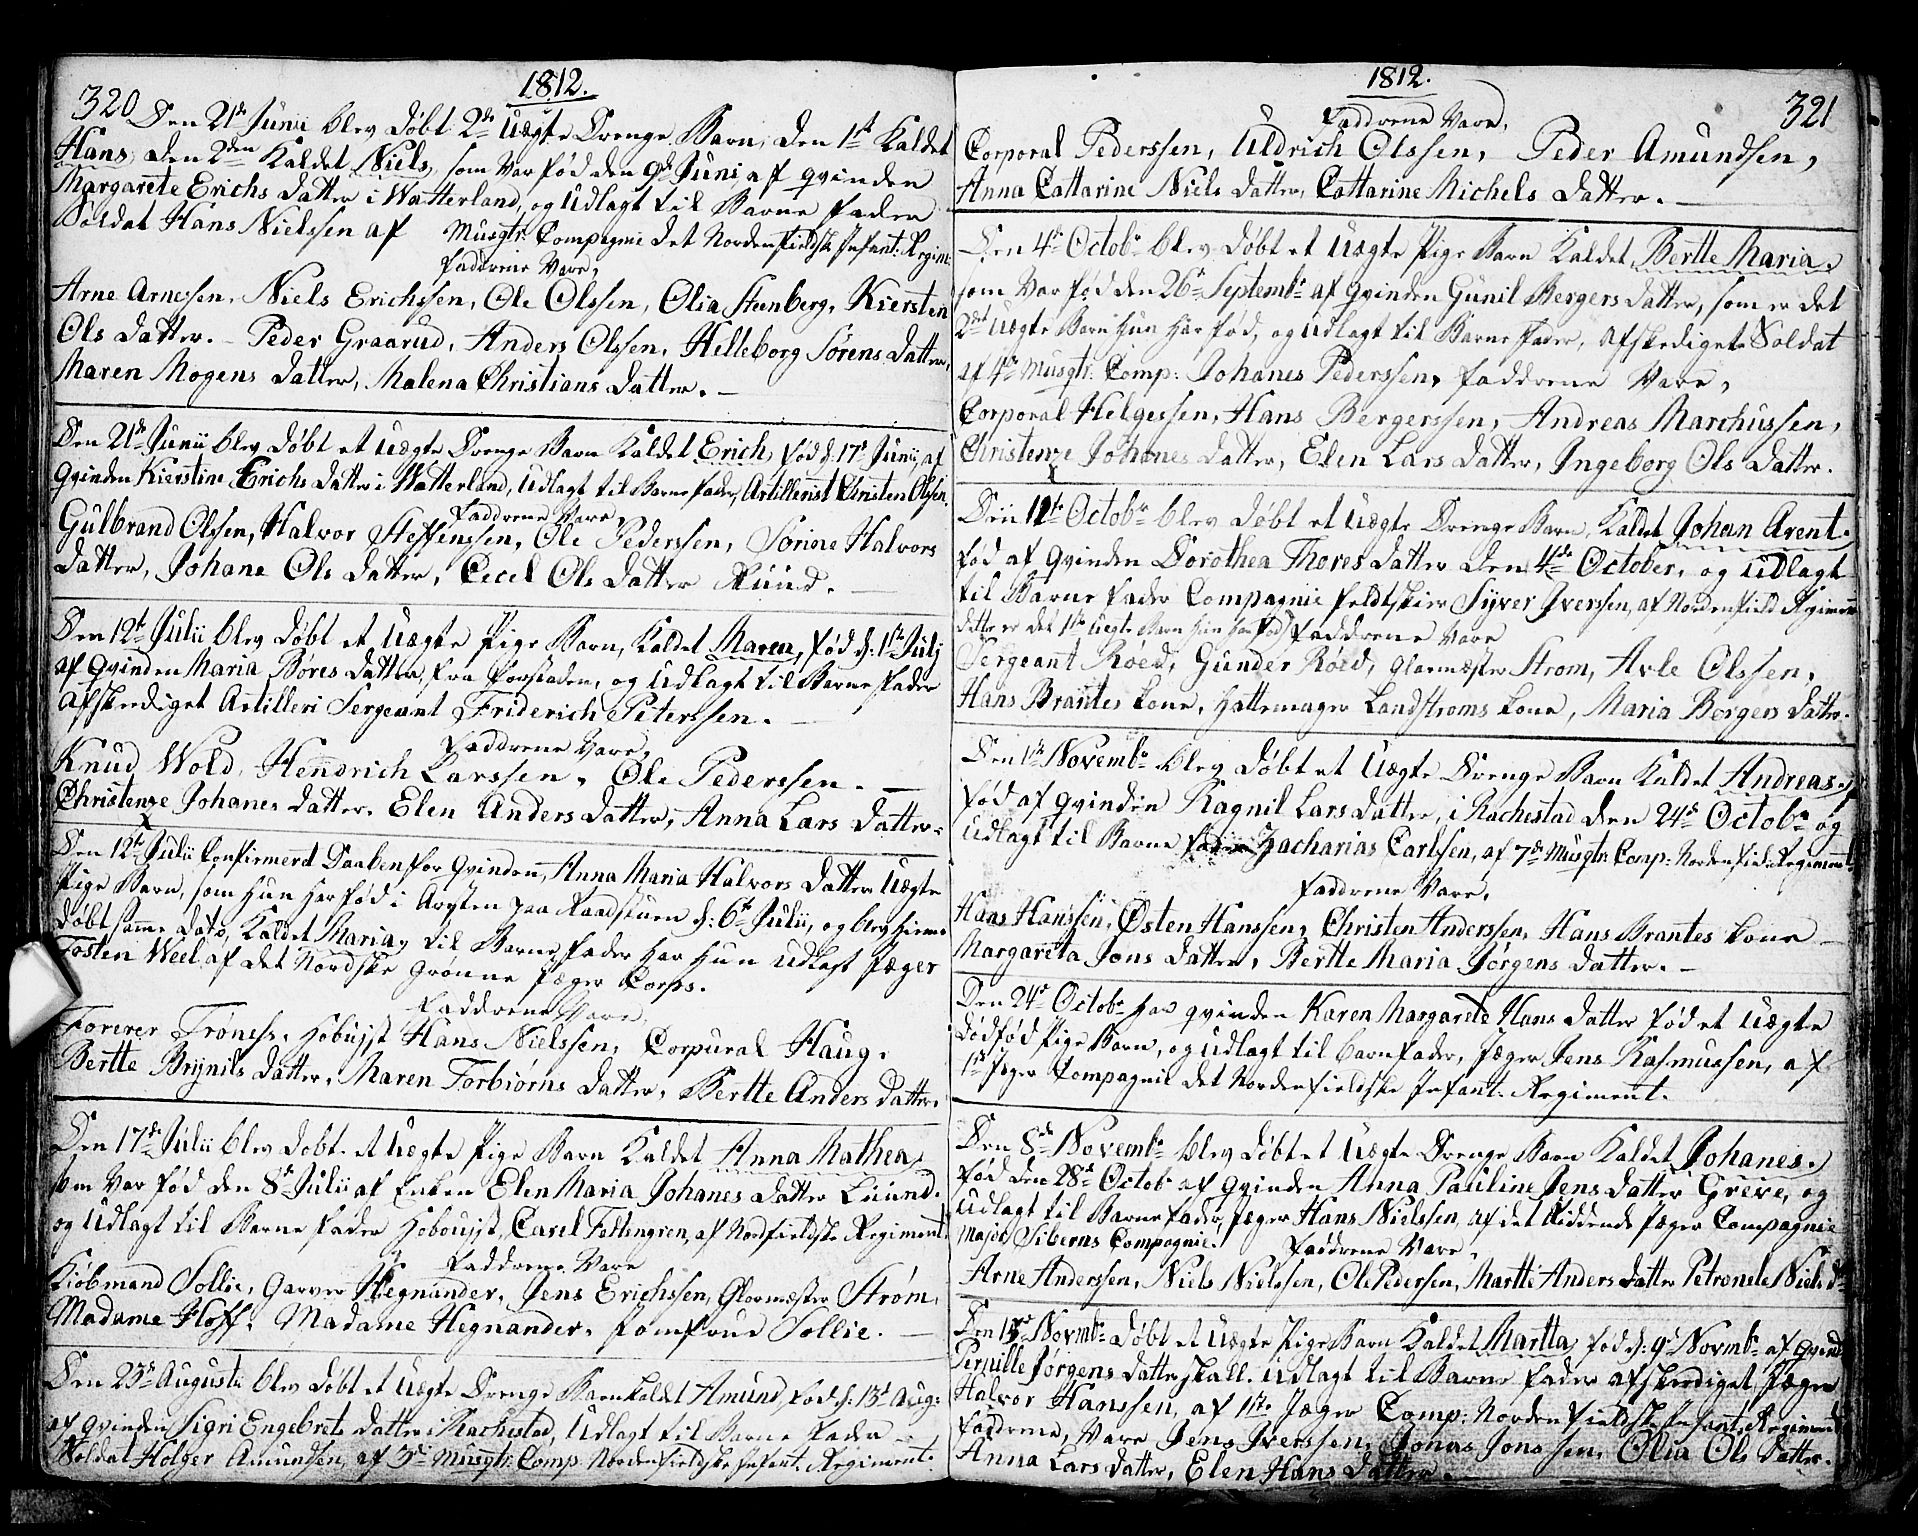 1812.
320
Den 21de Junii blev døbt 2de Uægte Drenge Barn, den 1st kaldet
Hans, den 2den kaldet Niels, som var fød den 9d Juni, af qvinden
Margarete Erichs datter i Watterland, og udlagt til Barne fader
Soldat Hans Nielssen af Musqtr. Compagnie det Nordenfieldske Infant: Regim:
faddrene vare,
Arne Arnesen, Niels Erichssen, Ole Olssen, Olia Steenberg, Kiersten
Ols datter. Peder Graarud, Anders Olssen, Helleborg Sørens datter,
Maren Mogens datter, Malena Christians datter.
Den 21de Junii blev døbt et uægte Drenge Barn kaldet Erich, fød d: 17d Junii, af
qvinden Kierstine Erichs datter i Watterland, udlagt til Barne fader, Artillerist Christen Olsen.
Faddrene vare,
Gulbrand Olsen, Halvor Steffenssen, Ole Pederssen, Sørine Halvors
datter, Johane Ols datter, Cecel Ols datter Ruud.
Den 12t Julii blev døbt et uægte Pige Barn, kaldet Maren, fød d: 1ste Julj
af qvinden Maria Børes datter, fra forstaden, og udlagt til Barne fader
afskediget Artilleri Sergeant Friderich Peterssen.
Faddrene vare,
Knud Wold, Hendrich Larssen, Ole Pederssen.
Christenze Johanes datter, Elen Anders datter, Anna Lars datter.
Den 12t Julii Confirmerd Daaben for qvinden, Anna Maria Halvors datter uægte
Pige Barn, som hun har fød i Arrsten paa Raadstuen d: 6t Julii, og blev hieme
døbt samme dato, kaldet Maria, til Barne fader har hun udlagt Jæger
Tosten Weel af det Nordske grønne Jæger Corps.
Faddrene vare,
Forerer Trønes, Hoboijst Hans Nielssen, Corpural Haug.
Bertte Brÿnils datter, Maren Torbiørns datter, Bertte Anders datter.
Den 17de Julii blev døbt et uægte Pige Barn kaldet Anna Mathea,
som var fød den 8d Julii af Enken Elen Maria Johanes datter Luund.
og udlagt til Barne fader Hoboujst, Carel Foltengren, af Nordfieldske Regiment.
Faddrene vare
Kiøbmand Sollie, Garver Hegnander, Jens Erichssen, Glarmæster Strøm,
Madame Hoff, Madame Hegnander, Jomfrue Sollie.
Den 23d Augusti blev døbt et uægte Drenge Barn kaldet Amund, fød d: 13d Aug:
af qvinden Sigri Engebrets datter i Rachestad, udlagt til Barne fader
Soldat Holger Amundsen, af 3d Musqtr: Comp. Nordenfieldske Infant: Regiment.
1812.
321
Faddrene vare,
Corporal Pederssen, Uldrich Olssen, Peder Amundsen,
Anna Cattarine Niels datter, Cattarine Michels datter.
Den 4de Octobr blev døbt et uægte Pige Barn kaldet Bertte Maria,
som var fød den 26d Septembr af qvinden Gunil Bergers datter, som er det
2det uægte Barn hun har fød, og udlagt til Barne fader, afskediget Soldat
af 4de Musqtr: Comp: Johanes Pederssen, faddrene vare,
Corporal Helgessen, Hans Bergerssen, Andreas Marchussen,
Christenze Johanes datter, Elen Lars datter, Ingeborg Ols datter.
Den 11te Octobr blev døbt et uægte Drenge Barn, kaldet Johan Arent.
fød af qvinden Dorothea Thores datter den 4de October, og udlagt
til Barne fader Compagnie feldtskier Syver Iverssen, af Nordenfield Regiment
dette er det 1ste uægte Barn hun har fød) faddrene vare
Sergeant Røed, Gunder Røed, glarmæster Strøm, Avle Olssen,
Hans Brantes kone, Hattemager Landstroms kone, Maria Bergers datter.
Den 1ste Novembr blev døbt et uægte Drenge Barn kaldet Andreas,
fød af qvinden Ragnil Lars datter, i Rachestad den 24d Octobr og
udlagt til Barne fader Zacharias Carlssen, af 7de Musqtr: Comp: Nordenfield: Regiment.
Faddrene vare,
Hans Hanssen, Østen Hanssen, Christen Anderssen, Hans Brantes kone
Margareta Jons datter, Bertte Maria Jørgens datter.
Den 24d Octobr har qvinden Karen Margareta Hans datter fød et uægte
dødfød Pige Barn, og udlagt til barnfader, Jæger Jens Rasmussen, af
1ste Jæger Compagnie det Nordenfieldske Infant: Regiment.
Den 8de Novembr blev døbt et uægte Drenge Barn kaldet Johanes,
fød den 28d Octobr af qvinden Anna Pauline Jens datter Greve, og
udlagt til Barne fader, Jæger Hans Nielssen, af det Riddende Jæger Compagnie
Major Siberns Compagnie. Faddrene vare,
Arne Anderssen, Niels Nielssen, Ole Pedersen, Martte Anders datter, Petronele Niels dr
Den 15d Novmbr døbt et uægte Pige Barn kaldet Martta, fød d: 9d Novmbr af qvind
Pernille Jørgens datter Skall. udlagt til Barne fader afskediget Jæger
Halvor Hanssen, af 1ste Jæger Comp: Nordenfieldske Infant: Regiment
faddrene, vare Jens Iverssen, Jonas Jonssen, Olia Ols datter.
Anna Lars datter, Elen Hans datter.